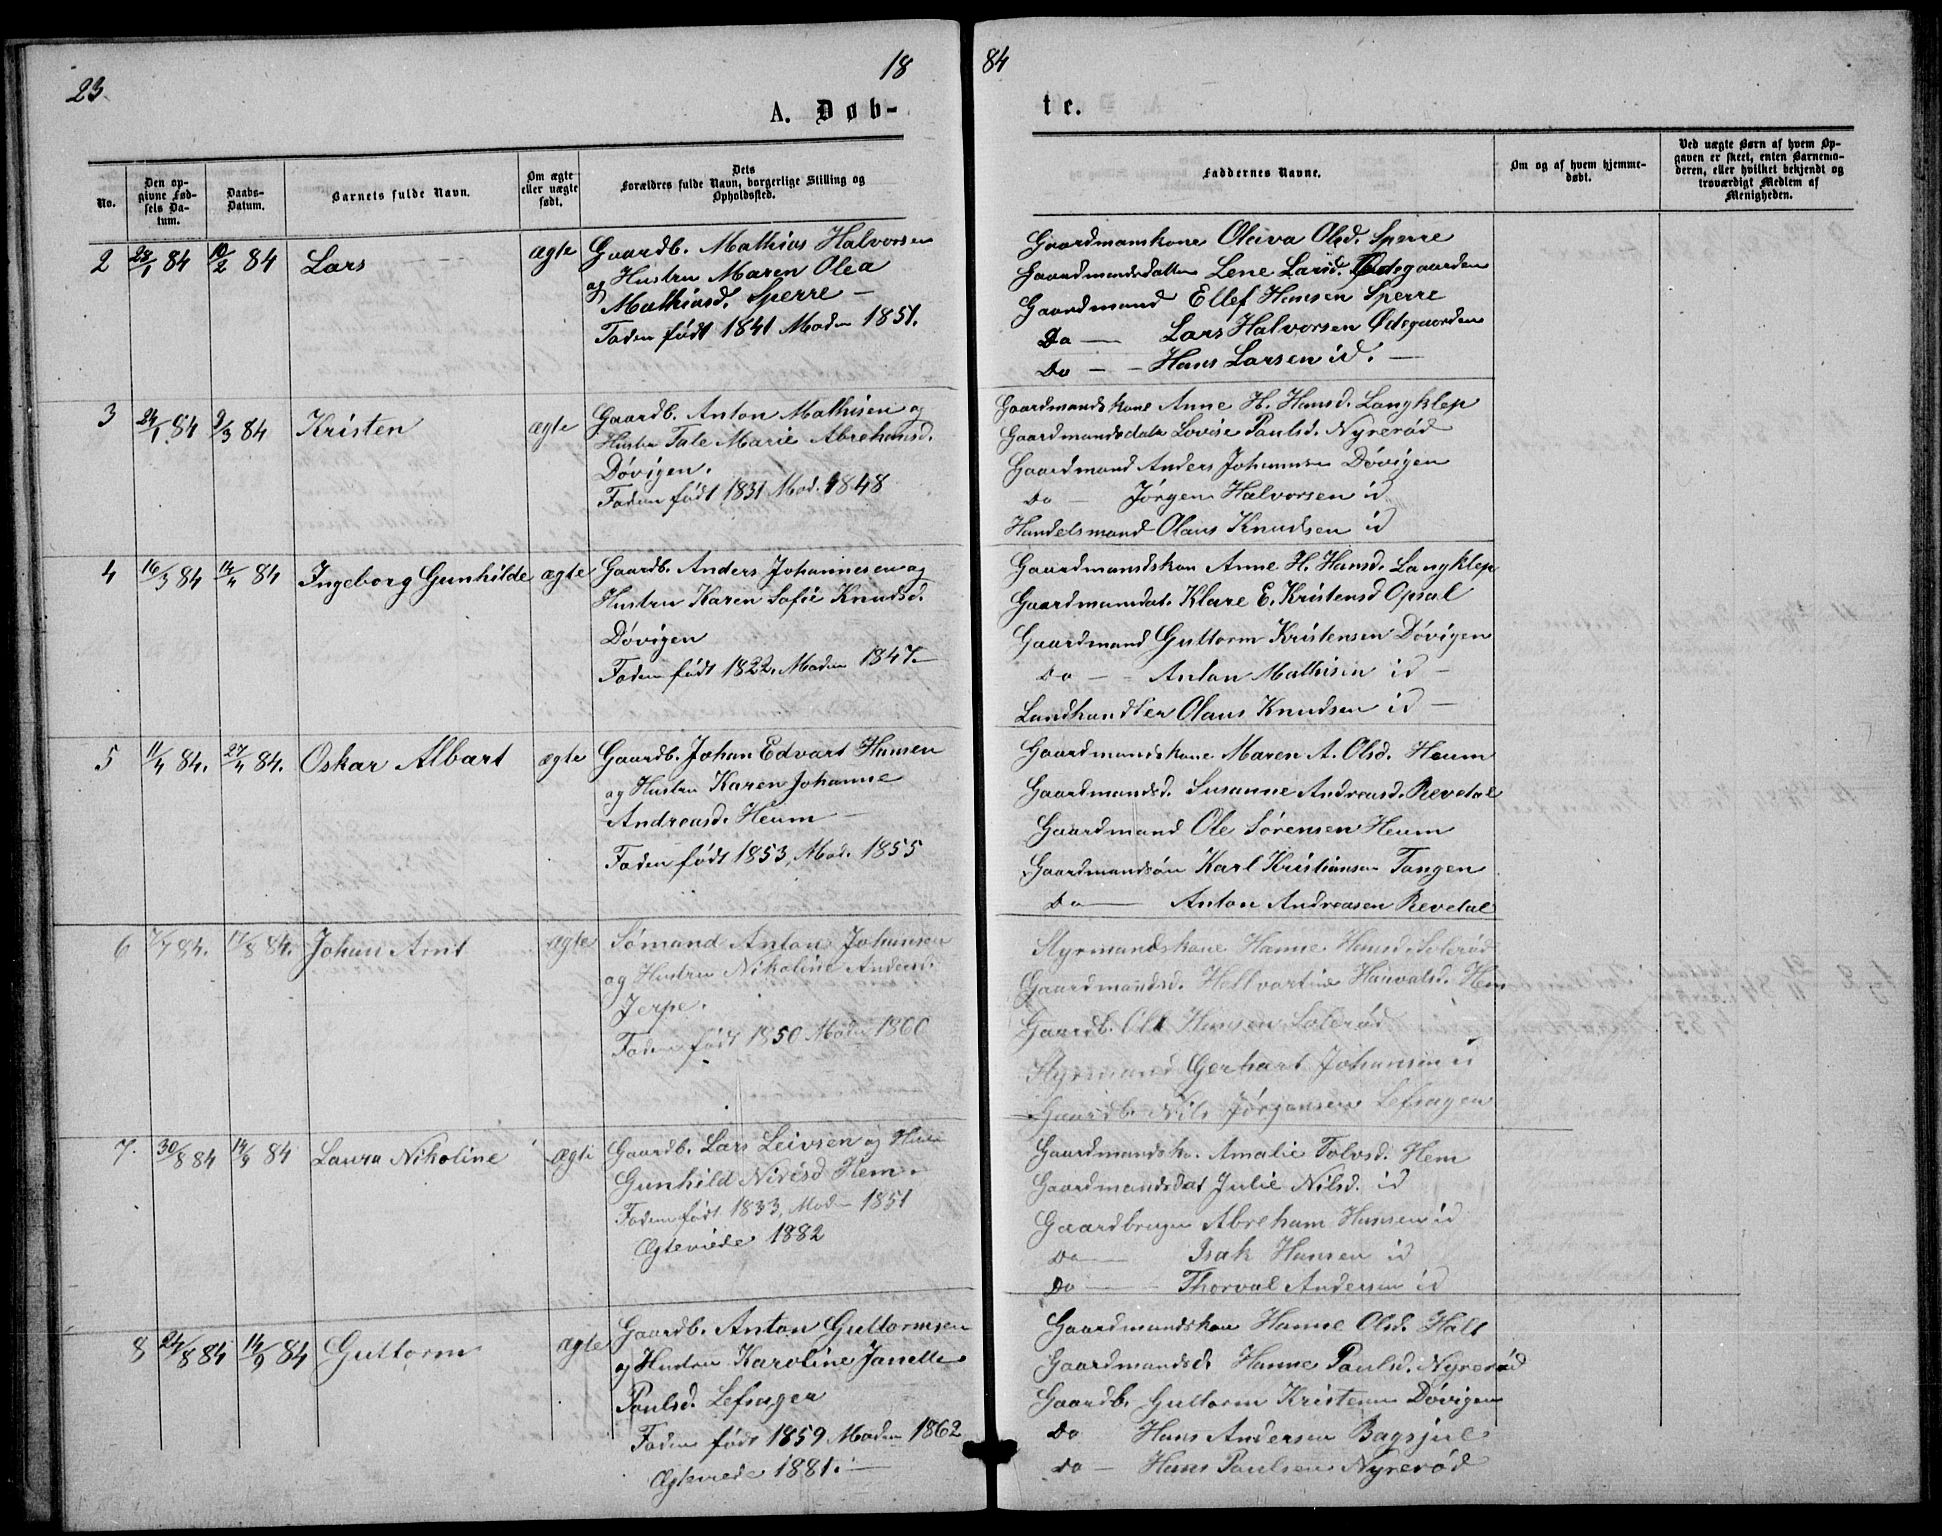 23.
18
84
A. Døb-
te.
No.
Den op-
givne Fød-
sels Da-
tum.
Daabs-
Datum.
Barnets fulde Navn.
Om ægte
eller uægte
født.
Dets
Forældres fulde Navn, borgerlige Stilling og
Opholdssted.
Faddernes Navne.
Om og af hvem hjemme-
døbt.
Ved uægte Børn af hvem Op-
gaven er skeet, enten Barnemo-
deren, eller hvilket bekjendt og
troværdigt Medlem af
Menigheden.
2 23/1 84 10/2 84 Lars ægte Gaardb. Mathias Halvorsen
og Hustru Maren Olea
Mathiasd. Sperre –
Faden født 1841 Moden 1851.
Gaardmanskone Oleiva Olsd. Sperre
Gaardmandsdatter Lene Larsd. Ødegaarden
Gaardmand Ellef Hansen Sperre
Do — Lars Halvorsen Ødegaarden
Do — Hans Larsen id. —
3 24/1 84 9/3 84 Kristen ægte Gaardb. Anton Mathisen og
Hustru Tale Marie Abrehamsd.
Døvigen.
Faden født 1831 Mod. 1848
Gaardmandskone Anne H. Hansd. Langklep
Gaardmandsdatr Lovise Paulsd. Nyrerød
Gaardmand Anders Johannesen Døvigen
Do — Jørgen Halvorsen id
Handelsmand Olaus Knudsen id
4 16/3 84 14/4 84 Ingeborg Gunhilde ægte Gaardb. Anders Johannesen og
Hustru Karen Sofie Knudsd.
Døvigen
Faden født 1822. Moden 1847.–
Gaardmandskon Anne H. Hansd. Langklep
Gaardmandat. Klare E. Kristensd Opsal
Gaardmand Guttorm Kristensen Døvigen
Do — Anton Mathisen id –
Landhandler Olaus Knudsen id –
5 11/4 84. 27/4 84. Oskar Albart ægte Gaardb. Johan Edvart Hansen
og Hustru Karen Johanne
Andreasd. Heum –
Faden født 1853, Mod. 1855
Gaardmandskone Maren A. Olsd. Heum
Gaardmandsd. Susanne Andreasd. Revetal
Gaardmand Ole Sørensen Heum
Gaardmandsøn Karl Kristiansen Tangen
Do — Anton Andreasen Revetal
6 7/7 84. 17/8 84. Johan Arnt ægte Sømand Anton Johansen
og Hustru Nikoline Andersd.
Jerpe.
Faden født 1850 Moden 1860
Styrmandskone Hanne Hansd. Solerød
Gaardmandsd. Hellvartine Harvalsd. Hem
Gaardb. Ole Hansen Solerød
Styrmand Gerhart Johansen id
Gaardb. Nils Jørgensen Lefsagen
7. 30/8 84 14/9 84 Laura Nikoline ægte Gaardb. Lars Leivsen og Hustru
Gunhild Nirisd Hem.
Faden født 1833, Moden 1851
Ægteviede 1882
Gaardmandsko. Amalie Tolvsd. Hem
Gaardmandsdat Julie Nilsd. id
Gaardbruger Abreham Hansen id
Do — Isak Hansen id
Do — Thorval Andersen id
8 24/8 84 14/9 84 Guttorm ægte Gaardb. Anton Guttormsen
og Hustru Karoline Janette
Paulsd. Lefsagen
Faden født 1859 Moden 1862
Ægteviede 1881. —
Gaardmandskon Hanne Olsd. Holt
Gaardmandsd. Hanne Paulsd. Nyrerød
Gaardb. Guttorm Kristensen Døvigen
Do Hans Andersen Bagsjul
Do – Hans Paulsen Nyrerød